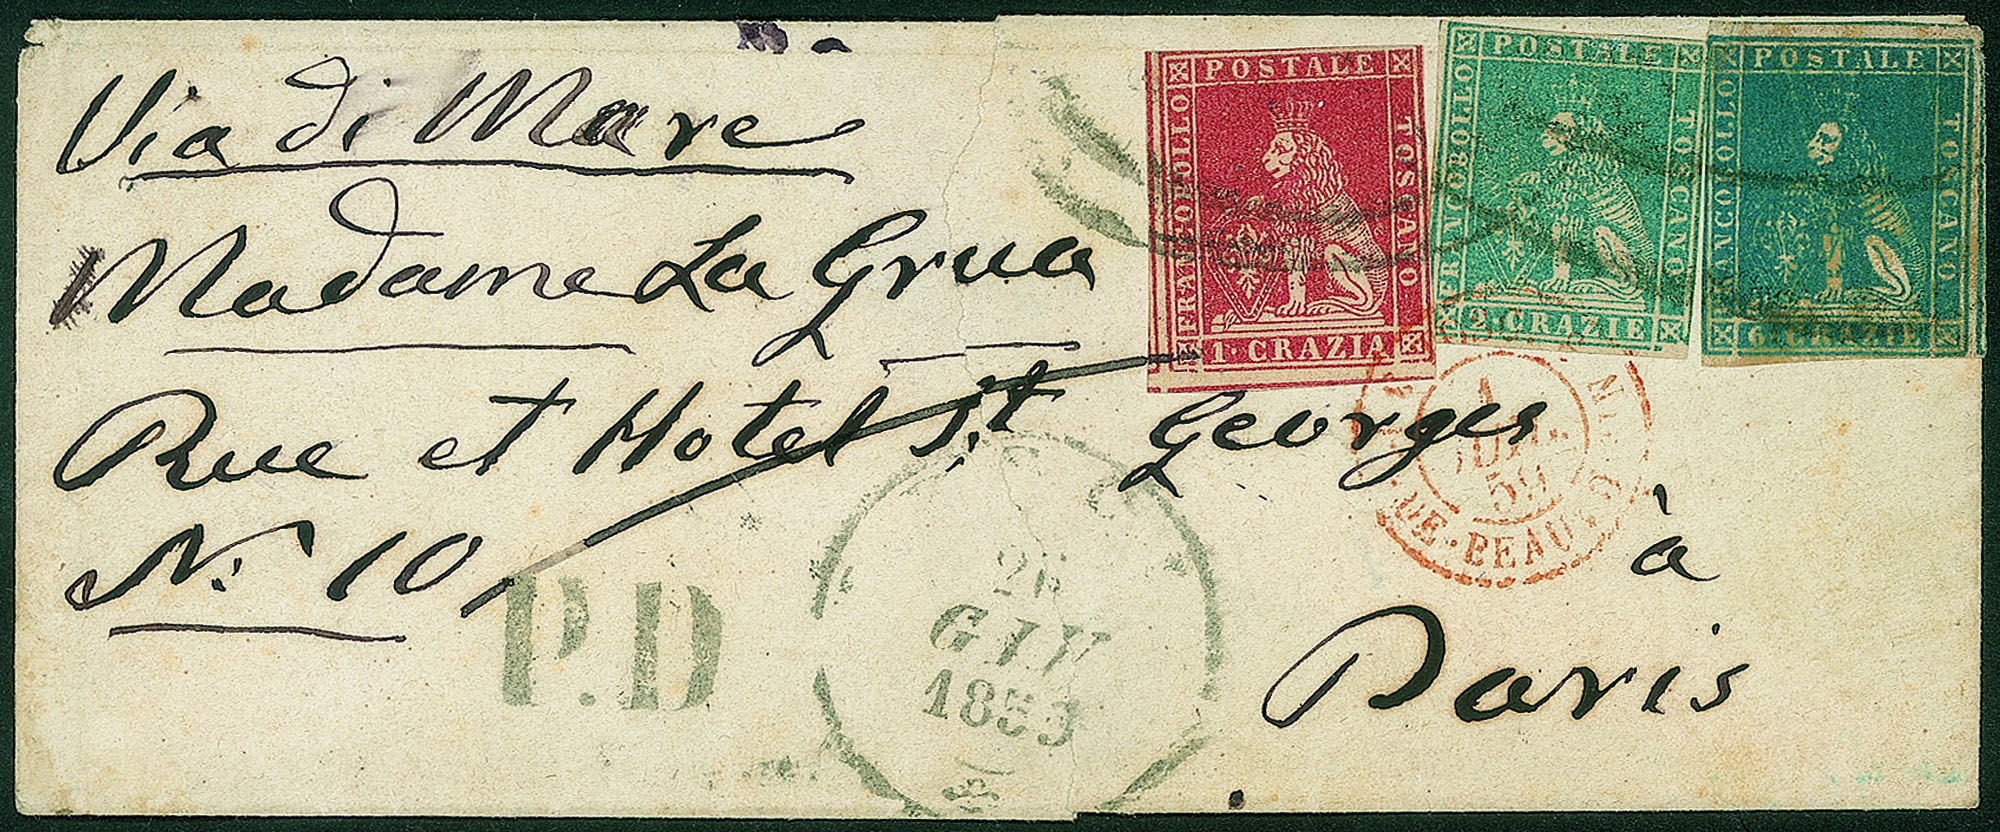 Via di Mare
Madame La Grua
Rue et Hotel St Georges
N: 10
à
Paris
P.D
26
GIU
1859
POSTALE
FRANCOBOLLO
TOSCANO
1·CRAZIA
POSTALE
FRANCOBOLLO
TOSCANO
2·CRAZIE
POSTALE
FRANCOBOLLO
TOSCAVO
6·CRAZIE
1
JUIL.
59
DE·BEAU